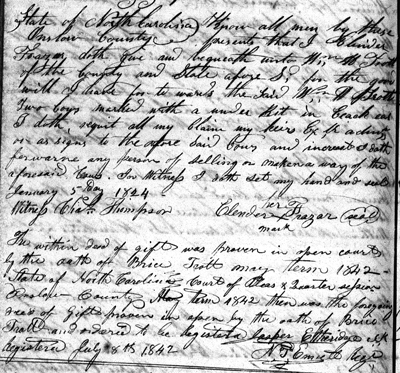 State of North Carolina Know all men by these
Onslow County presents that I Clender
Frazar doth give and bequeath unto Wm. W. Trott
of the County and State afore Sd for the good
will I have for to wards the Said Wm W Trott
Two Cows marked with a under bit in Each ear
I doth, requit all my Claim my heirs Exrs admtrs
or as signs to the afore Said Cows and increas I doth
forwarne any person of selling or maken a way of the
aforesaid Cows. In Witness I doth set my hand and seal
January 5 day 1824
Witness Chas. Thompson Clender her Frazar seal
mark
The within deed of gift was proven in open court
by the oath of Brice Trott may term 1842
State of North Carolina Court of Pleas & Quarter session
Onslow County May term 1842 then was the foregoing
deed of Gift proven in open by the oath of Brice
Trott and ordered to be registered Jasper Etheridge clk
Registered July 8th 1842